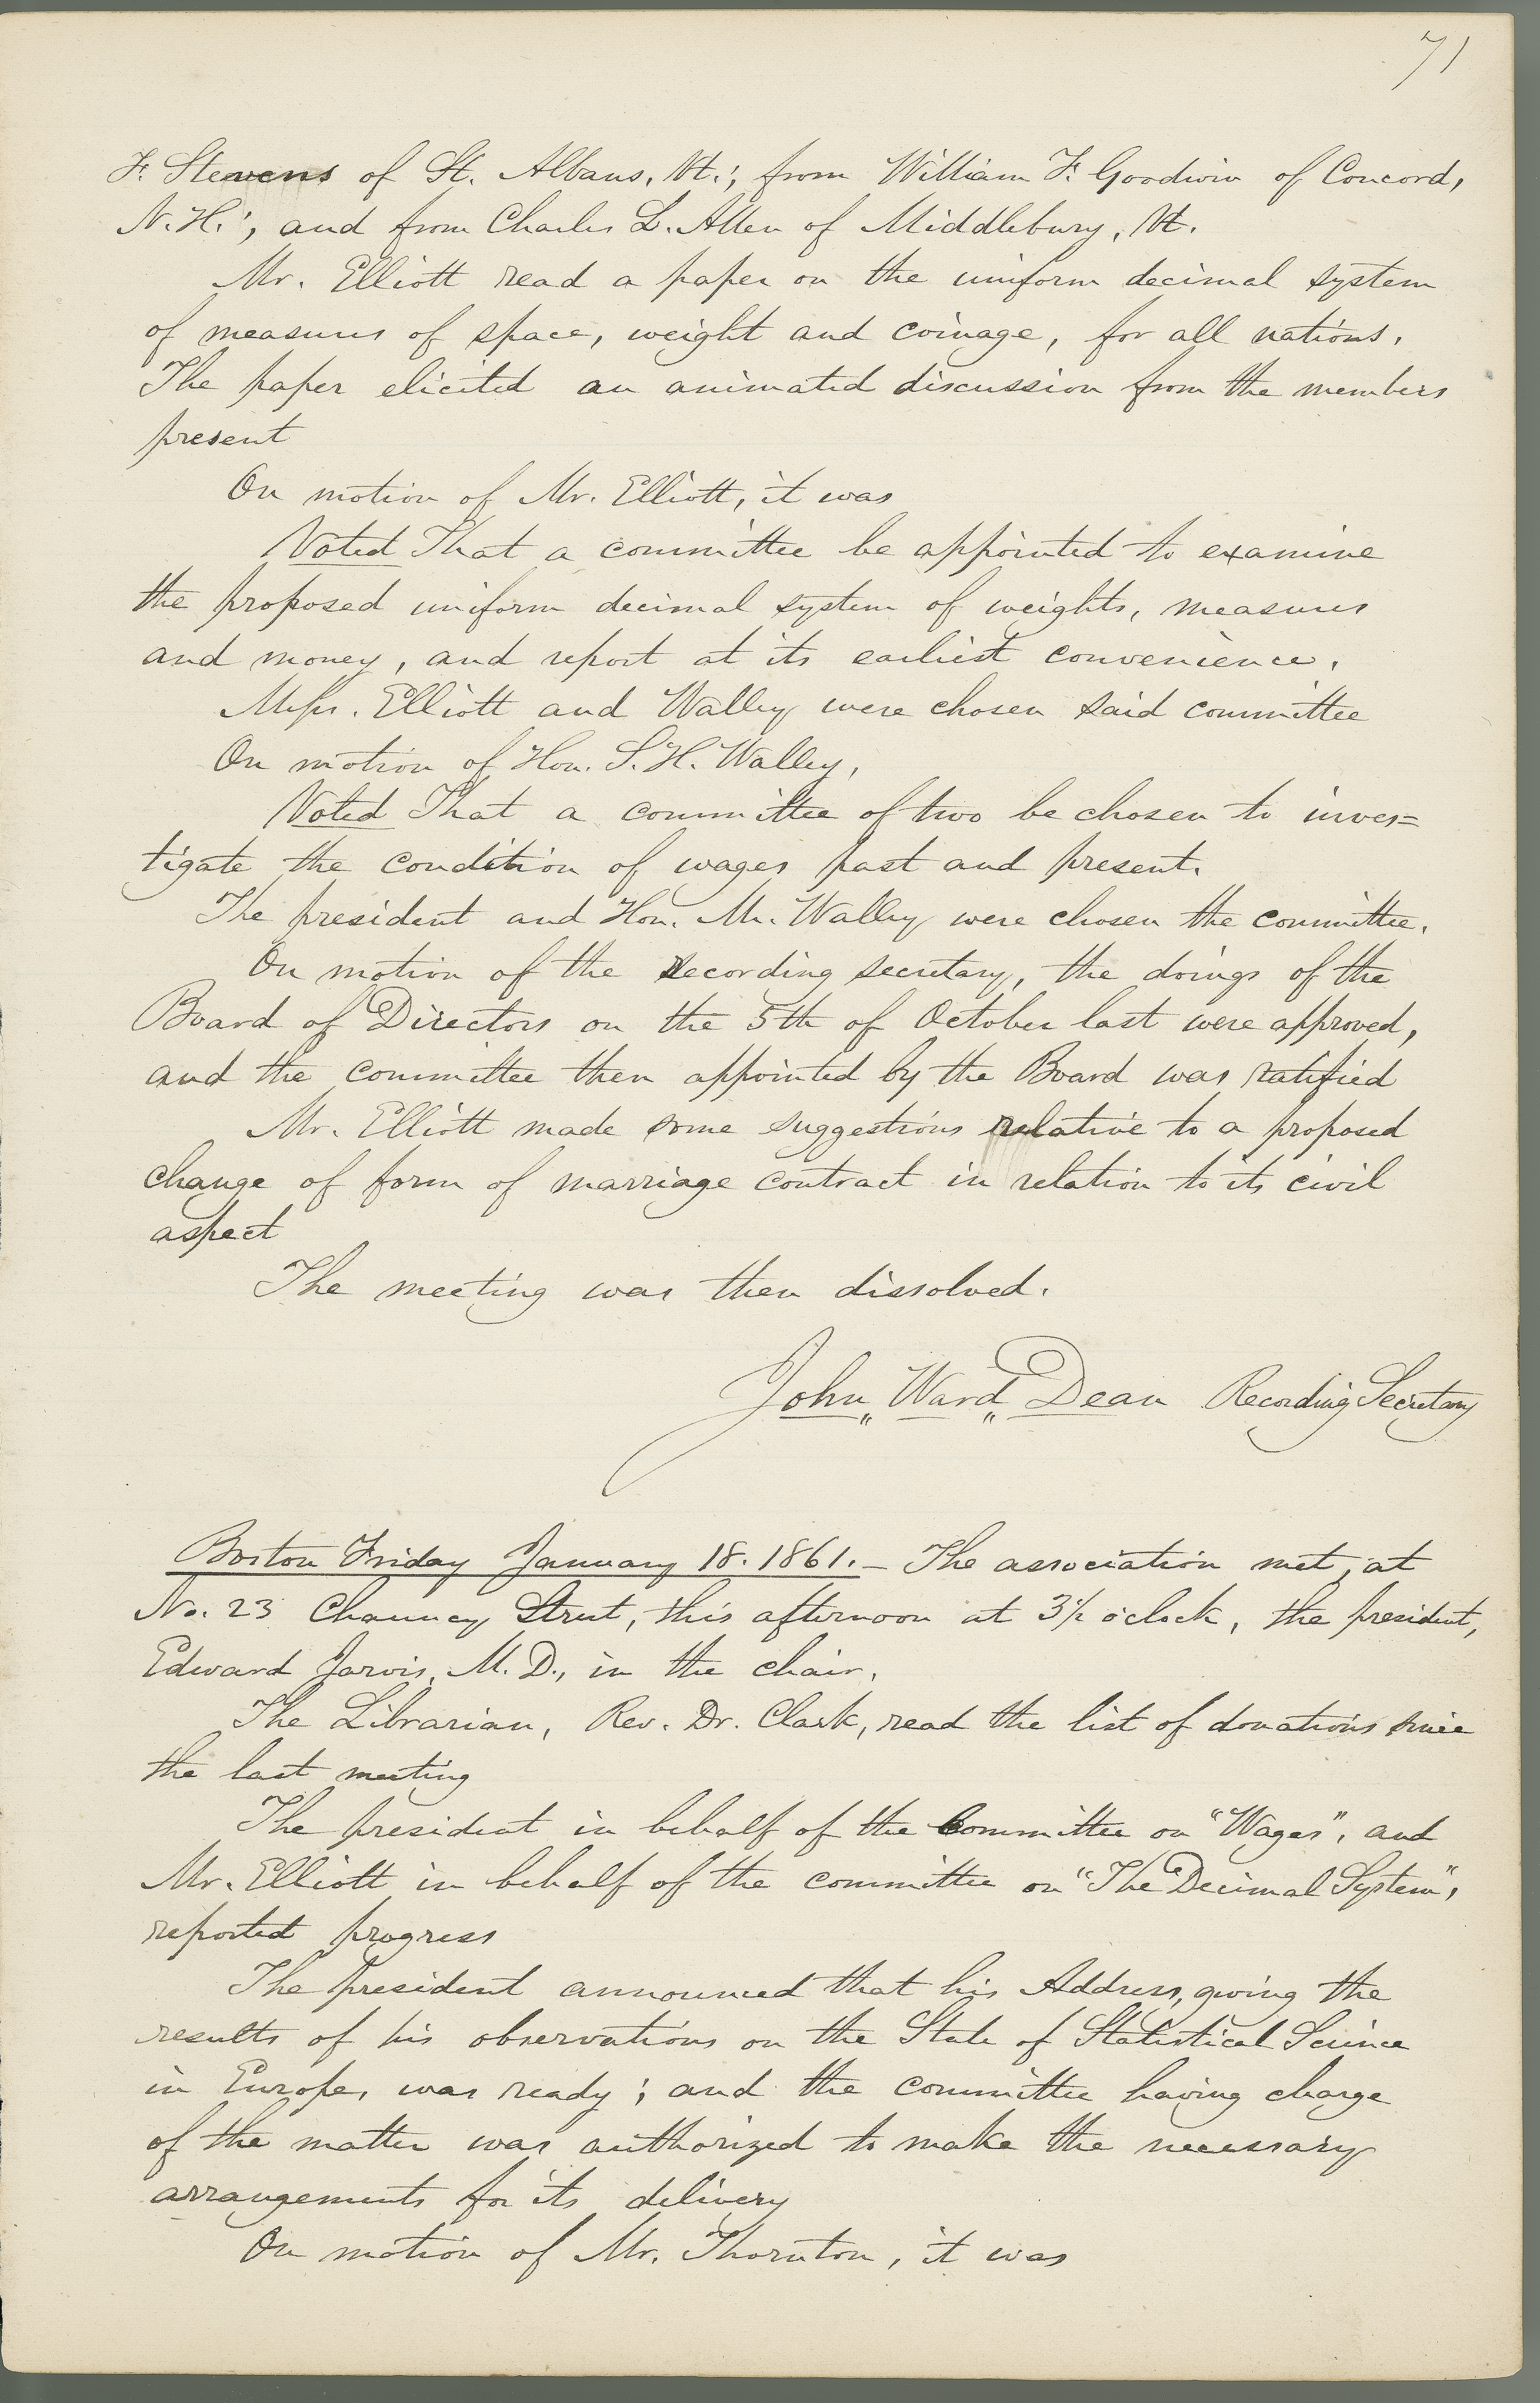 71
F. Stevens of St. Albans, Vt.; from William F. Goodwin of Concord,
N.H.; and from Charles L. Allen of Middlebury, Vt.
Mr. Elliott read a paper on the uniform decimal system
of measures of space, weight and coinage, for all nations.
The paper elicited an animated discussion from the members
present
On motion of Mr. Elliott, it was
Voted That a committee be appointed to examine
the proposed uniform decimal system of weights, measures
and money, and report at its earliest convenience.
Messrs. Elliott and Walley were chosen said committee
On motion of Hon. S. H. Walley,
Voted That a committee of two be chosen to inves=
tigate the condition of wages past and present.
The president and Hon. Mr. Walley were chosen the committee.
On motion of the Recording secretary, the doings of the
Board of Directors on the 5th of October last were approved,
and the committee then appointed by the Board was ratified
Mr. Elliott made some suggestions relative to a proposed
change of form of marriage contract in relation to its civil
aspect
The meeting was then dissolved.
John Ward Dean Recording Secretary
Boston Friday January 18. 1861. – The association met, at
No. 23 Chauncy Street, this afternoon at 3½ o'clock, the president,
Edward Jarvis, M. D., in the chair.
The Librarian, Rev. Dr. Clark, read the list of donations since
the last meeting
The president in behalf of the Committee on "Wages", and
Mr. Elliott in behalf of the committee on "The Decimal System",
reported progress
The president announced that his Address, giving the
results of his observations on the State of Statistical Science
in Europe, was ready; and the committee having charge
of the matter was authorized to make the necessary
arrangements for its delivery
On motion of Mr. Thornton, it was